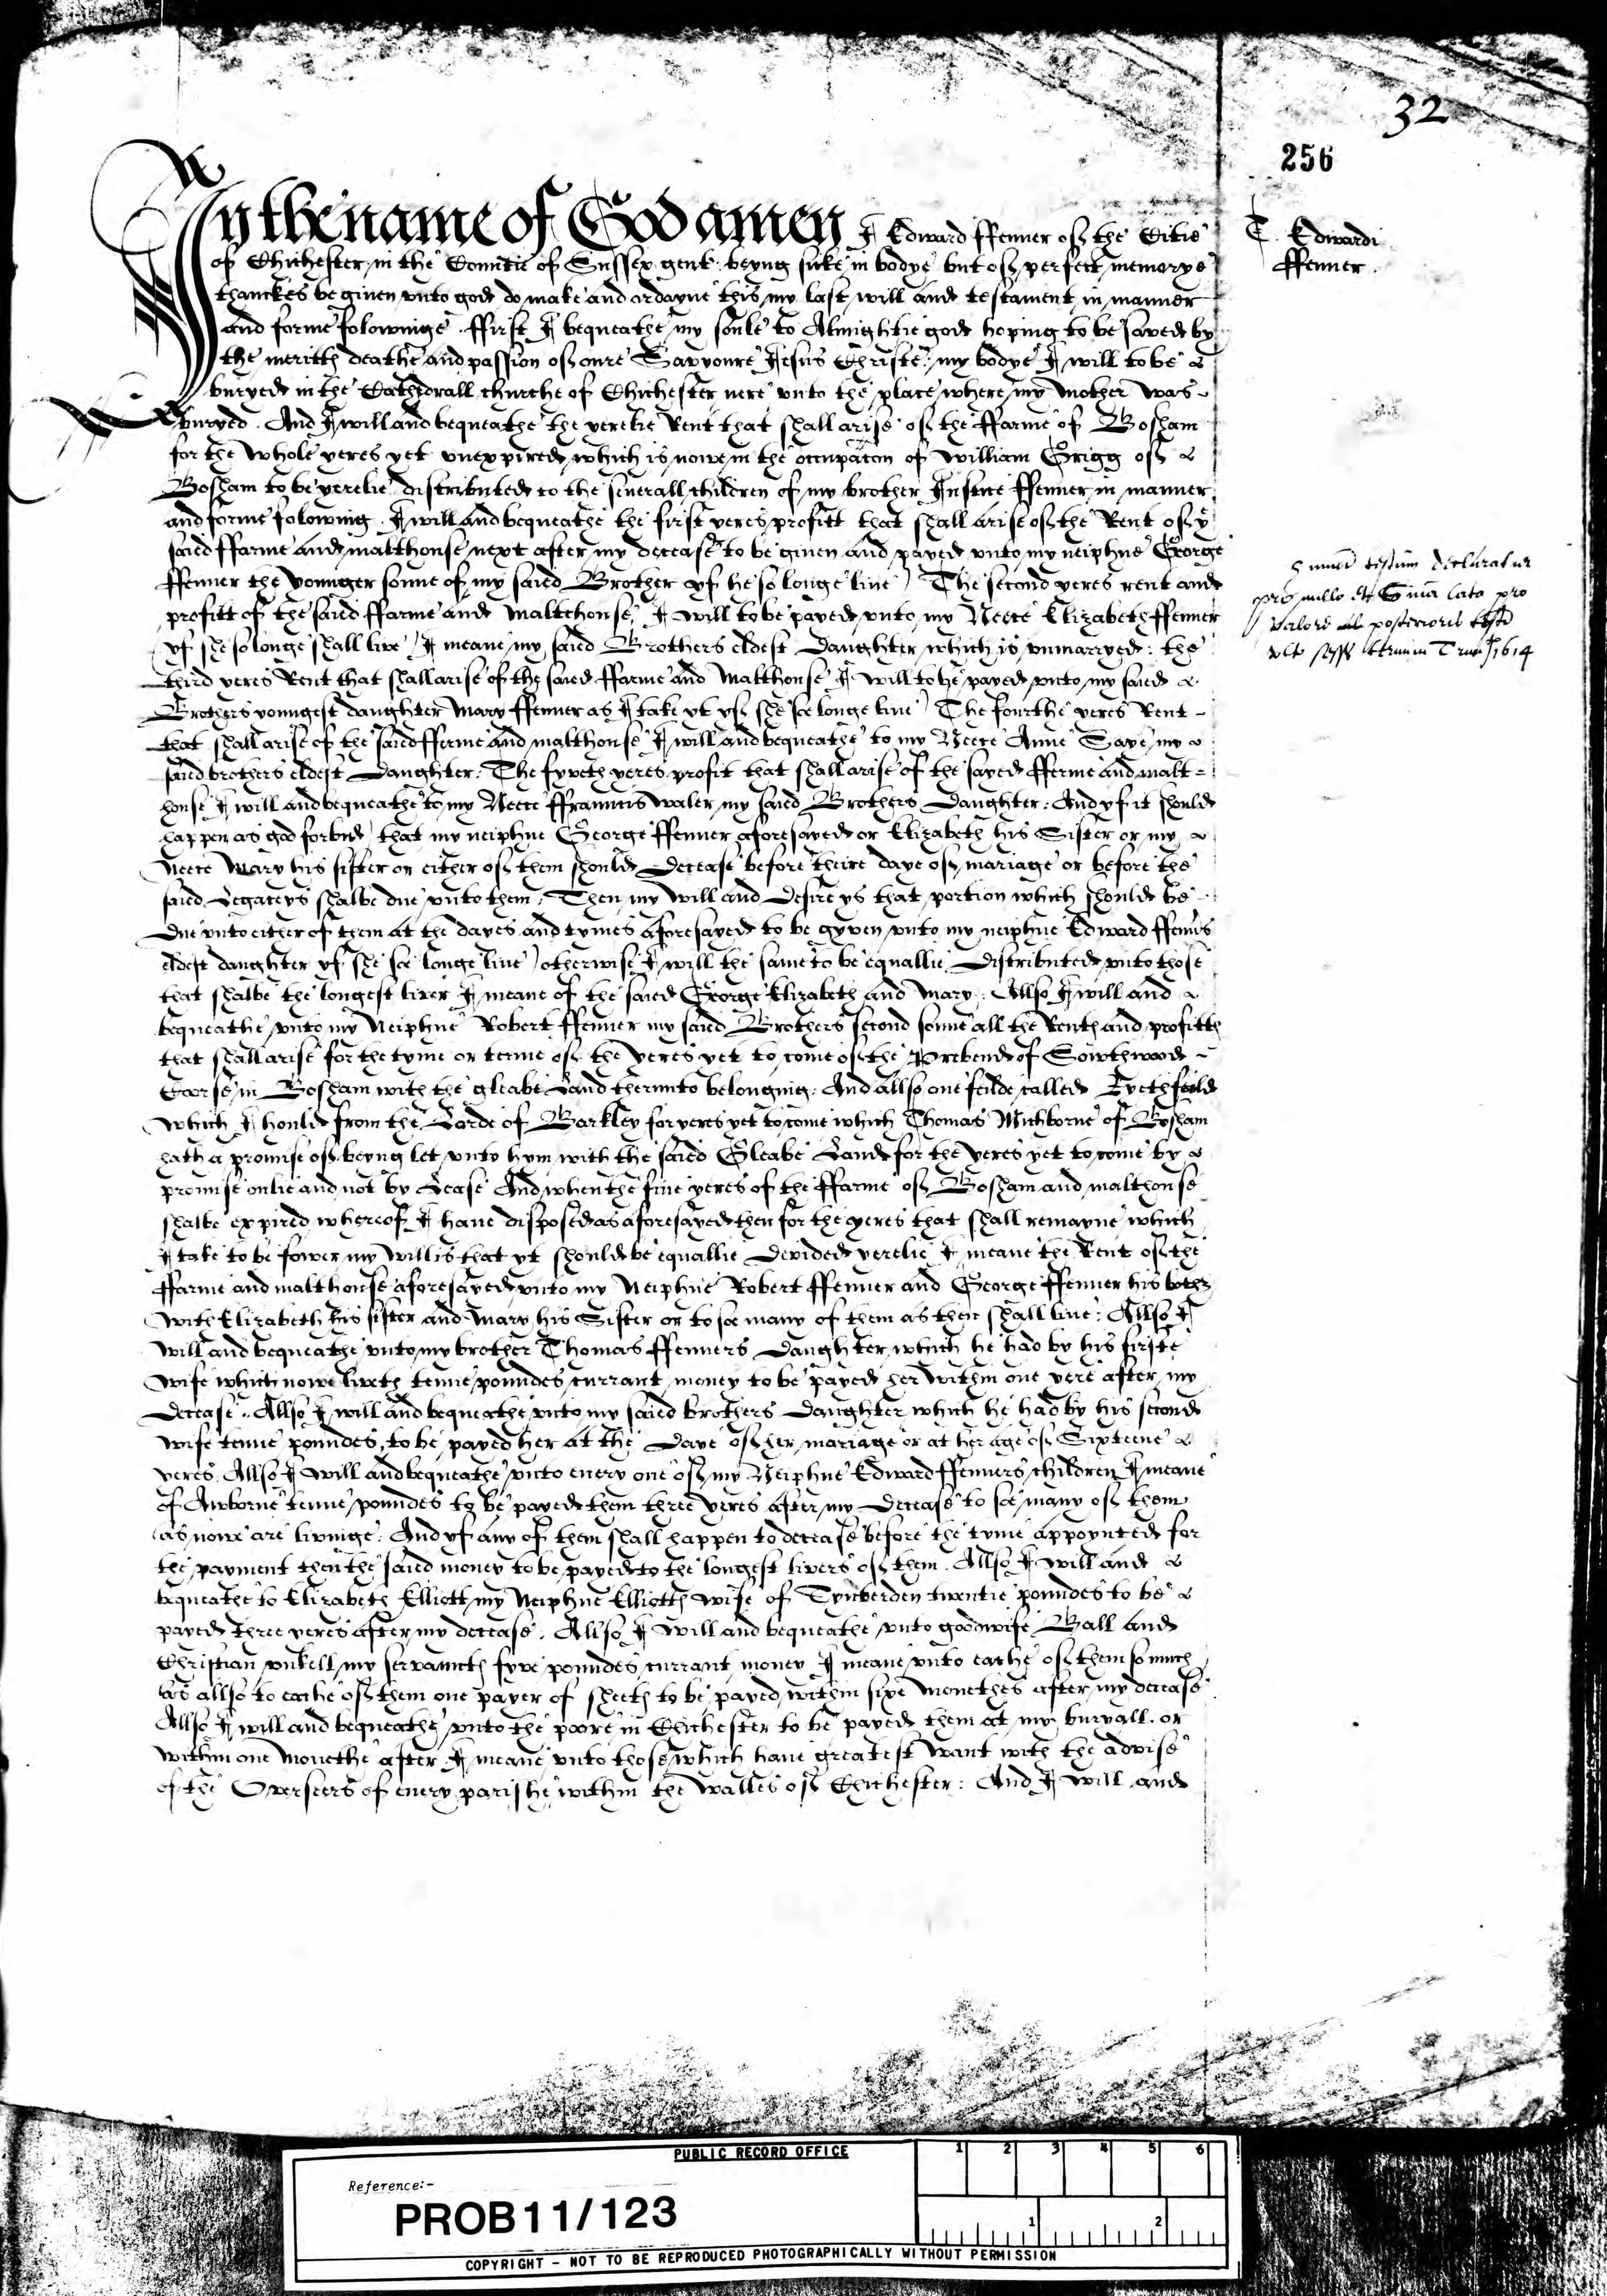 32
256
T. Edwardi
ffenner.
In the name of God amen I Edward ffenner of the Citie
of Chichester in the Countie of Sussex gent beyng sicke in bodye but of perfect memorye
thanckes be given unto god do make and ordayne this my last will and testament in manner
and forme folowinge. ffirst I bequeathe my soule to Almightie god hoping to be saved by
the meritts deathe and passion of oure Savyoure Jesus Christe: my bodye I will to be
buryed in the Cathedrall churche of Chichester nere unto the place where my mother was
buryed. And I will and bequeathe the yerelie Rent that shall arise of the ffarme of Bosham
for the whole yeres yet unexpired which is nowe in the occupacon of William Grigg of
Bosham to be yerelie distributed to the severall children of my brother Justice ffenner in manner
and forme folowing. I will and bequeathe the first yeres profitt that shall arise of the Rent of ye
saied ffarme and malthouse next after my decease to be given and payed unto my neiphue George
ffenner the younger sonne of my saied Brother yf he so longe live) The second yeres rent and
profitt of the saied ffarme and Maltehouse, I will to be payed unto my Neece Elizabeth ffenner
yf she so longe shall live / I meane my saied Brothers eldest Daughter which is unmarryed: the
third yeres Rent that shall arise of the saied ffarme and Malthouse I will to be payed unto my saied
Brothers youngest daughter Mary ffenner as I take yt yf she soe longe live) The fourthe yeres Rent
that shall arise of the saied fferme and malthouse I will and bequeathe to my Neece Anne Saye my
saied brothers eldest Daughter. The fyveth yeres profit that shall arise of the sayed fferme and malt=
house I will and bequeathe to my Neece ffraunces Waler my saied Brothers Daughter: And yf it should
happen as god forbid) that my neiphue George ffenner aforesayed or Elizabeth his Sister or my
Neece Mary his sister or either of them should Decease before theire daye of mariage or before the
saied Legacyes shalbe due unto them: Then my will and Desire ys that portion which should be
Due unto either of them at the dayes and tymes aforesayed to be gyven unto my neiphue Edward ffenners
eldest daughter yf she soe longe live) otherwise I will the same to be equallie Distributed unto those
that shalbe the longest liver I meane of the saied George Elizabeth and Mary: Allso I will and
bequeathe unto my Neiphue Robert ffenner my saied Brothers second sonne all the Rents and profitts
that shall arise for the tyme or terme of the yeres yet to come of the Prebend of Sowthwoode
in Bosham with the gleabe Land therunto belonging: And allso one feilde called
which I hould from the Lorde of Barkley for yeres yet to come which Thomas Michborne of Bosham
hath a promise of beyng let unto hym with the saied Gleabe Land for the yeres yet to come by
promise onlie and not by Lease And when the five yeres of the ffarme of Bosham and malthouse
shalbe expired whereof I have disposed as aforesayed then for the yeres that shall remayne which
I take to be fower my will is that yt should be equallie Devided yerelie I meane the Rent of the
ffarme and malthouse aforesayed unto my Neiphue Robert ffenner and George ffenner his
with Elizabeth his sister and Mary his Sister or to soe many of them as then shall live: Allso I
will and bequeathe unto my brother Thomas ffenners Daughter which he had by his firste
wife which nowe liveth tenne poundes currant money to be payed her within one yere after my
Decease.. Allso I will and bequeathe unto my saied brothers Daughter which he had by his second
wife tenne poundes, to be payed her at the Daye of her mariage or at her age of Sixteene
yeres. Allso I will and bequeathe unto every one of my Neiphue Edward ffenners children I meane
of Awborne tenne poundes to be payed them three yeres after my Decease to soe many of them
as nowe are livinge: And yf any of them shall happen to decease before the tyme appoynted for
the payment then the saied money to be payed to the longest livers of them. Allso I will and
bequeathe to Elizabeth Elliott my Neiphue Elliotts wife of twentie poundes to be
payed three yeres after my decease. Allso I will and bequeathe unto goodwife Ball and
Christian my servaunts fyve poundes currant money I meane unto eache of them so much
as allso to eache of them one payer of sheets to be payed within sixe monethes after my decease
Allso I will and bequeathe unto the poore in Chichester to be payed them at my buryall or
within one monethe after I meane unto those which have greatest want with the advise
of the Overseers of every parishe within the walles of Chichester: And I will and
PUBLIC RECORD OFFICE
1 2 3 4 5 6
Reference:-
PROB 11/123
1 2
COPYRIGHT - NOT TO BE REPRODUCED PHOTOGRAPHICALLY WITHOUT PERMISSION